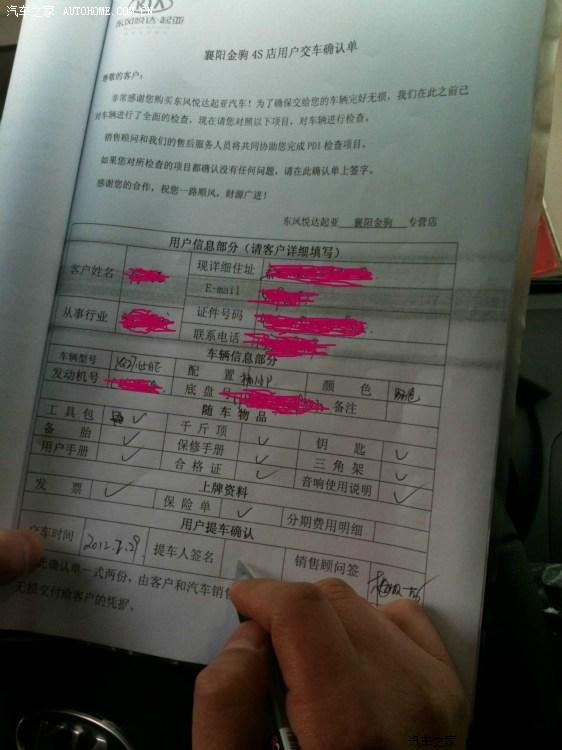 汽车之家 AUTOHOME.COM.CN
东风悦达·起亚
襄阳金驹 4S 店用户交车确认单
尊敬的客户：
非常感谢您购买东风悦达起亚汽车！为了确保交给您的车辆完好无损，我们在此之前已
对车辆进行了全面的检查，现在请您对照以下项目，对车辆进行检查。
销售顾问和我们的售后服务人员将共同协助您完成 PDI 检查项目。
如果您对所检查的项目都确认没有任何问题，请在此确认单上签字。
感谢您的合作，祝您一路顺风，财源广进！
东风悦达起亚 襄阳金驹 专营店
用户信息部分（请客户详细填写）
客户姓名 现详细住址
E-mail
从事行业 证件号码
联系电话
车辆信息部分
车辆型号 配 置 颜 色
发动机号 底盘号 备注
随车物品
工具包 ✓ 千斤顶 钥 匙 ✓
备 胎 ✓ 保修手册 ✓ 三角架 ✓
用户手册 ✓ 合格证 ✓ 音响使用说明 ✓
上牌资料
发 票 ✓ 保险单 ✓ 分期费用明细
用户提车确认
交车时间 2012.2.29 提车人签名 销售顾问签
此确认单一式两份，由客户和汽车销售
无损交付给客户的凭据。
汽车之家